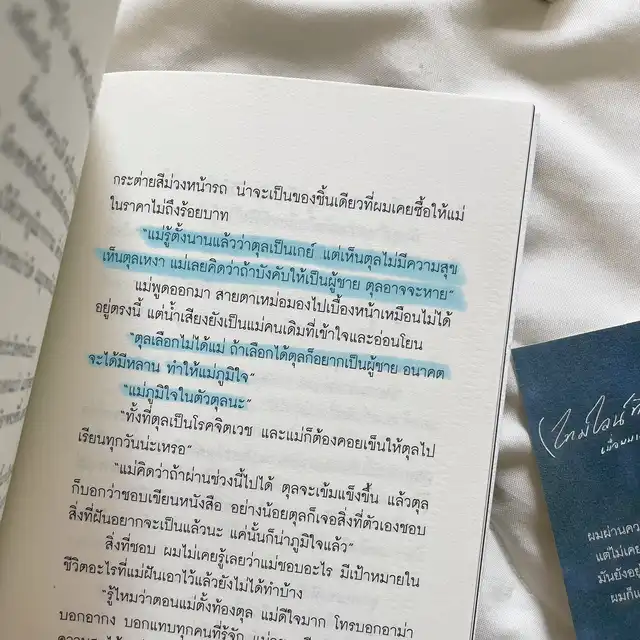 กระต่ายสีม่วงหน้ารถ น่าจะเป็นของชิ้นเดียวที่ผมเคยซื้อให้แม่
ในราคาไม่ถึงร้อยบาท
"แม่รู้ตั้งนานแล้วว่าตุลเป็นเกย์ แต่เห็นตุลไม่มีความสุข
เห็นตุลเหงา แม่เลยคิดว่าถ้าบังคับให้เป็นผู้ชาย ตุลอาจจะหาย"
แม่พูดออกมา สายตาเหม่อมองไปเบื้องหน้าเหมือนไม่ได้
อยู่ตรงนี้ แต่น้ำเสียงยังเป็นแม่คนเดิมที่เข้าใจและอ่อนโยน
"ตุลเลือกไม่ได้แม่ ถ้าเลือกได้ตุลก็อยากเป็นผู้ชาย อนาคต
จะได้มีหลาน ทำให้แม่ภูมิใจ"
"แม่ภูมิใจในตัวตุลนะ"
"ทั้งที่ตุลเป็นโรคจิตเวช และแม่ก็ต้องคอยเข็นให้ตุลไป
เรียนทุกวันน่ะเหรอ"
"แม่คิดว่าถ้าผ่านช่วงนี้ไปได้ ตุลจะเข้มแข็งขึ้น แล้วตุล
ก็บอกว่าชอบเขียนหนังสือ อย่างน้อยตุลก็เจอสิ่งที่ตัวเองชอบ
สิ่งที่ฝันอยากจะเป็นแล้วนะ แค่นั้นก็น่าภูมิใจแล้ว"
สิ่งที่ชอบ ผมไม่เคยรู้เลยว่าแม่ชอบอะไร มีเป้าหมายใน
ชีวิตอะไรที่แม่ฝันเอาไว้แล้วยังไม่ได้ทำบ้าง
"รู้ไหมว่าตอนแม่ตั้งท้องตุล แม่ดีใจมาก โทรบอกอาม่า
บอกอากง บอกแทบทุกคนที่รู้จัก
(ไทม์ไลน์
ผมผ่าน
แต่ไม่เค
มันยังอยู่
ผมก็